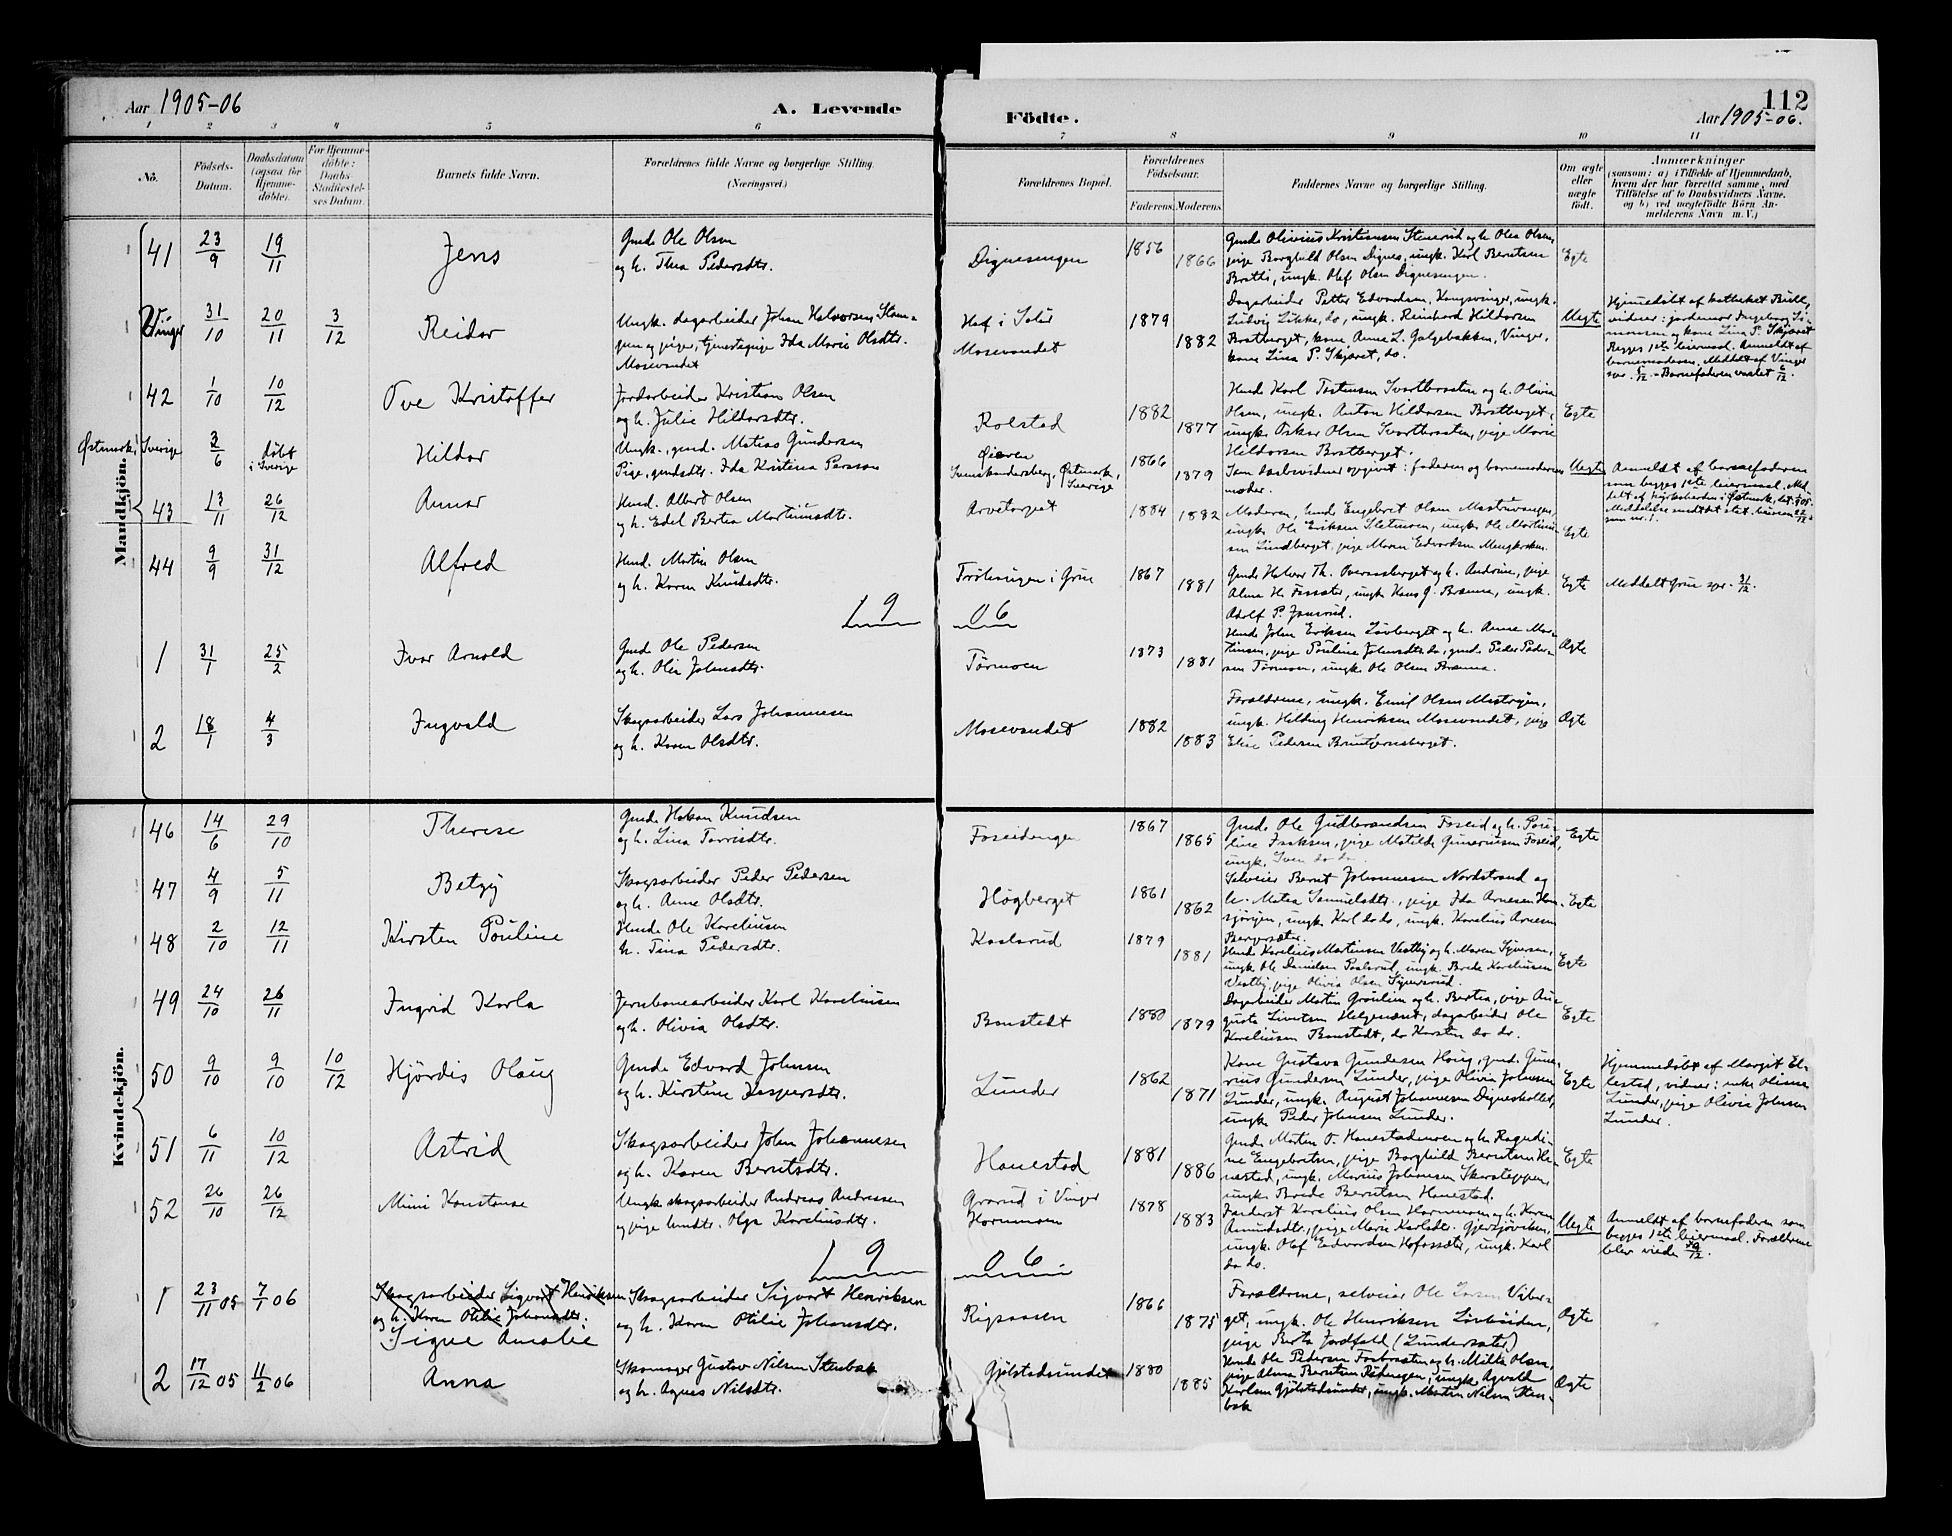 Aar 1905-06
A. Levende
Födte.
112
Aar 1905-06.
1 2 3 4 5 6 7 8 9 10 11
No.
Födsels-
Datum.
Daabsdatum
(ogsaa for
Hjemme-
døbte).
For Hjemme-
døbte:
Daabs-
Stadfæstel-
ses Datum.
Barnets fulde Navn.
Forældrenes fulde Navne og borgerlige Stilling.
(Næringsvei.)
Forældrenes Bopæl.
Forældrenes
Födselsaar.
Faderens. Moderens.
Faddernes Navne og borgerlige Stilling.
Om ægte
eller
uægte
født.
Anmærkninger
(saasom: a) i Tilfælde af Hjemmedaab,
hvem der har forrettet samme, med
Tilföielse af to Daabsvidners Navne.
og b) ved uægtefödte Börn An-
melderens Navn m. V.)
Mandkjön.
41 23/9 19/11 Jens
Gmd. Ole Olsen
og h. Thea Pedersdtr.
Dignesengen 1856 1866
Gmds Olivius Kristiansen Stenerud og h. Olea Olsen,
pige Borghild Olsen Dignes, ungk. Karl Berntsen
Bratli, ungk. Olaf Olsen Dignesengen.
Egte
Vinger 31/10 20/11 3/12 Reidar
Ungk. dagarbeider Johan Halvorsen
og pige, tjenestepige Ida Marie Olsdtr.
Mosevandet
Hof i Solør
Mosevandet
1879 1882
Dagarbeider Petter Edvardsen, Kongsvinger, ungk.
Ludvig Løkke, do, ungk. Reinhard Hildorsen
Bratberget, kone Anna L. Galgebakken, Vinger,
kone Lina P. Skjæret, do.
Uegte
Hjemmedøbt af kateket Bull,
vidner: jordemor Ingeborg Si-
monsen og kone Lina P. Skjæret
Begges 1ste leiermaal. Anmeldt af
barnemoderen. Meddelt af Vinger
spr. 5/12 - Barnefaderen varslet 6/12.
42 1/10 10/12 Ove Kristoffer
Jordarbeider Kristian Olsen
og h. Julie Hildorsdtr.
Rolstad 1882 1877
Hmd. Karl Svartbraaten og h. Olivia
Olsen, ungk. Anton Hildorsen Bratberget,
ungk. Oskar Olsen Svartbraaten, pige Marie
Hildorsen Bratberget.
Egte
Østmark, Sverige 3/6 døbt
i Sverige
Hildor
Ungk., gmd. Matias Gundersen
Pige, gmdsdtr. Ida Kristina Persson
Øieren
Svenskandersberg, Østmark,
Sverige
1866 1879
Som daabsvidner opgivet: faderen og barnemoderens
moder.
Uegte
Anmeldt af barnefaderen
som begges 1ste leiermaal.
43 13/11 26/12 Annar
Hmd. Albert Olsen
og h. Edel Bertea Martinusdtr.
Arvetorpet 1884 1882
Moderen, hmd. Engebret Olsen
ungk. Ole Eriksen Sletmoen, ungk. Ole Martin-
sen Lindberget, pige Maren Edvardsen
Egte
44 9/9 31/12 Alfred
Hmd. Martin Olsen
og h. Karen Knudsdtr.
i Grue 1867 1881
Gmds Halvor Th. Overaasberget og h. Andrine, pige
Alma H. ungk. Hans G. ungk.
Adolf P.
Egte
Meddelt Grue spr. 31/12.
19 06
1 31/1 25/2 Ivar Arnold
Gmd. Ole Pedersen
og h. Olea Johnsdtr.
Tørmoen 1873 1881
Hmds John Eriksen Løvberget og h. Anne Mar-
tinsen, pige Pauline Johnsdtr. do, gmds. Peder Peder-
sen Tørmoen, ungk. Ole Olsen
Ægte
2 18/1 4/3 Ingvald
Skogsarbeider Lars Johannesen
og h. Karen Olsdtr.
Mosevandet 1882 1883
Forældrene, ungk. Emil Olsen
ungk. Hilding Henriksen Mosevandet, pige
Elise Pedersen
Ægte
Kvindekjön.
46 14/6 29/10 Therese
Gmd. Hakon Knudsen
og h. Lina
Foseidengen 1867 1865
Gmd. Ole Gudbrandsen Foseid og h. Pau-
line Isaksen, pige Matilde Gunerusen Foseid,
ungk. Sven do do.
Egte
47 4/9 5/11 Betzy
Skogsarbeider Peder Pedersen
og h. Anne Olsdtr.
Høgberget 1861 1862
Selveier Bernt Johannesen Nordstrand og
h. Matea Samuelsdtr., pige Ida Arnesen
ungk. Karl do do, ungk. Karelius Arnesen
Bergersæter.
Egte
48 2/10 12/11 Kirsten Pauline
Hmds Ole Kareliusen
h. Tina Pedersdtr.
1879 1881
Hmds Karelius Martinsen Vestby og h. Maren Syversen,
ungk. Ole Danielsen ungk. Brede Kareliusen
Vestby, pige Olivia Olsen Syversrud.
Egte
49 24/10 26/11 Ingrid Karla
Jernbanearbeider Karl Kareliusen
og h. Olivia Olsdtr.
Banstedt 1880 1879
Dagarbeider Martin og h. Bertea, pige Au-
gusta Sivertsen Helgenæset, dagarbeider Ole
Kareliusen Banstedt, do Karsten do do.
Egte
50 9/10 9/10 10/12 Hjördis Olaug
Gmds Edvard Johnsen
og h. Kirstine Kaspersdtr.
Lunder 1862 1871
Kone Gustava Gundersen Haug, gmd. Gune-
rius Gundersen Lunder, pige Olivia Johnsen
Lunder, ungk. August Johannesen Digneskollet,
ungk. Peder Johnsen Lunder.
Egte
Hjemmedøbt af Margit El-
lestad, vidner: enke Oliane
Lunder, pige Olivia Johnsen
Lunder.
51 6/11 10/12 Astrid
Skogsarbeider John Johannesen
og h. Karen Berntsdtr.
Hanestad 1881 1886
Gmds Martin O. Hanestadmoen og h. Ragndi-
ne Engebretsen, pige Borghild Berntsen Ha-
nestad, ungk. Marius Johannesen
ungk. Brede Berntsen Hanestad.
Egte
52 26/10 26/12 Mimi Konstanse
Ungk. skogsarbeider Andreas Andreasen
og pige hmdtr. Olga Kareliusdtr.
Grarud i Vinger
Hornmoen
1878 1883
Karelius Olsen Hornmoen og h. Karen
Amundsdtr., pige Marie Karlsdtr. Gjersjøviken,
ungk. Olaf Edvardsen ungk. Karl
do do.
Uegte
Anmeldt af barnefaderen som
begges 1ste leiermaal. Forældrene
blev viede 30/12.
19 06
1 23/11 05 7/1 06
Skogsarbeider Sigvart Henriksen
og h. Karen Otilie Johansdtr.
Signe Amalie
Skogsarbeider Sigvart Henriksen
og h. Karen Otilie Johansdtr.
Rigsaasen 1866 1875
Forældrene, selveier Ole Larsen Viber-
get, ungk. Ole Henriksen
pige Berta Jordfald (Lundersæter)
Ægte
2 17/12 05 11/2 06 Anna
Skomager Gustav Nilsen Stenbak
og h. Agnes Nilsdtr.
Gjølstadsundet 1880 1885
Hmds Ole Pedersen og h. Milla Olsen,
pige Anna Berntsen ungk. Agvald
Karlsen Gjølstadsundet, ungk. Martin Nilsen Sten-
bak
Ægte